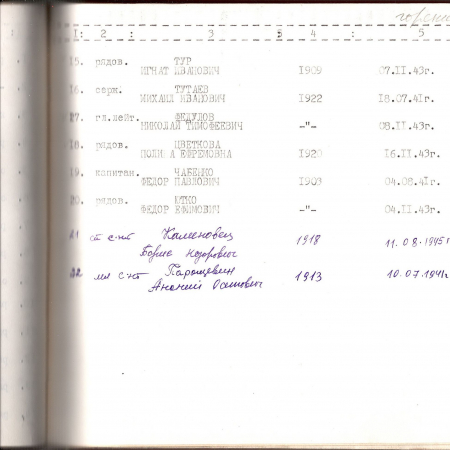 горени
1: 2 : 3 : 4 : 5
15. рядов. ТУР
ИГНАТ ИВАНОВИЧ 1909 07.II.43г.
16. серж. ТУТАЕВ
МИХАИЛ ИВАНОВИЧ 1922 18.07.41г.
17. гл.лейт. ФЕДУЛОВ
НИКОЛАЙ ТИМОФЕЕВИЧ -"- 08.II.43г.
18. рядов. ЦВЕТКОВА
ПОЛИНА ЕФРЕМОВНА 1920 16.II.43г.
19. капитан. ЧАБЕНКО
ФЕДОР ПАВЛОВИЧ 1903 04.08.41г.
20. рядов. ЮТКО
ФЕДОР ЕФИМОВИЧ -"- 04.II.43г.
21 ст с-нт Каменовец 1918 11.08.1945г
Борис
22 мл с-нт 1913 10.07.1941г